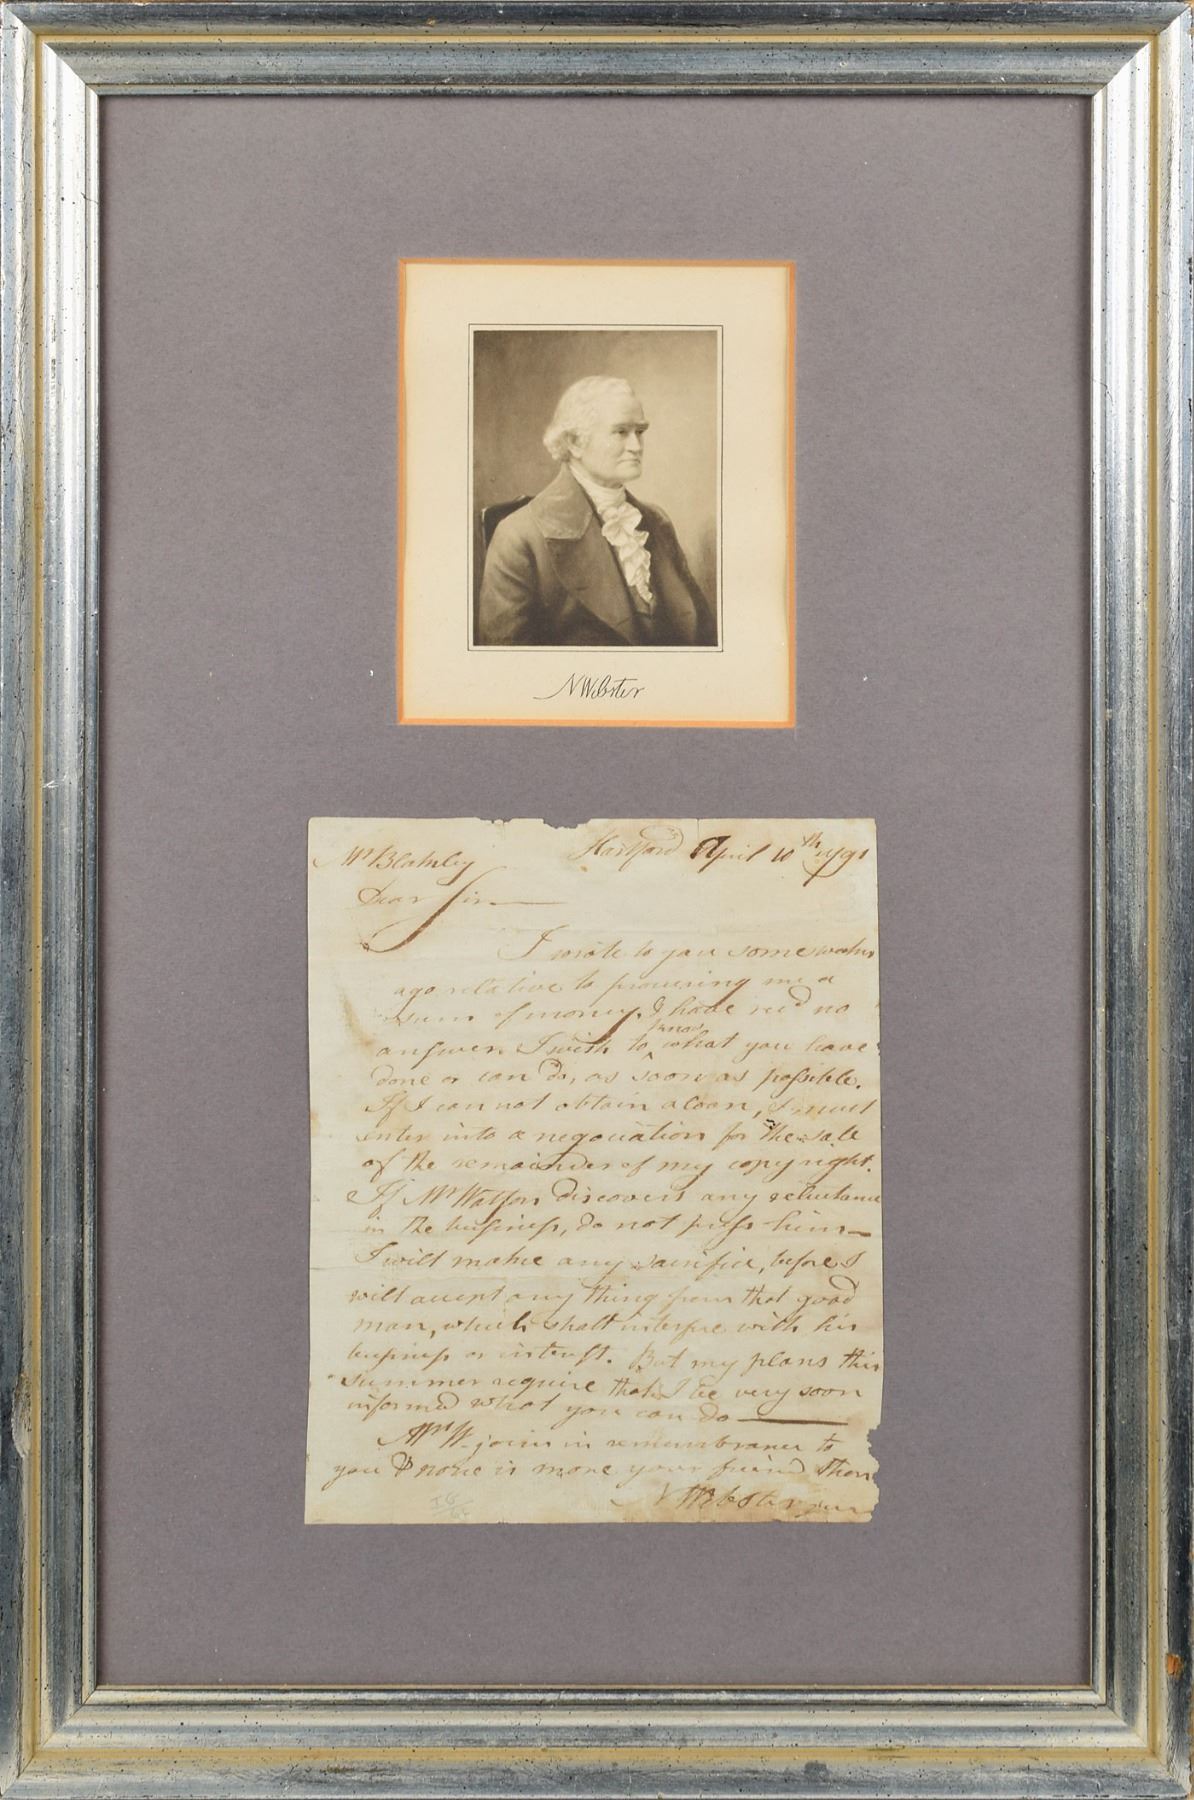 N Webster
Hartford April 10th 1791
Mr Blakeley
Dear Sir
I wrote to you some weeks
ago relative to procuring me a
sum of money. I have recd no
answer. I wish to know what you have
done or can do, as soon as possible.
If I can not obtain a loan, I must
enter into a negociation for the sale
of the remainder of my copy right.
If Mr Watson discovers any reluctance
in the business, do not press him—
I will make any sacrifice, before I
will accept any thing from that good
man, which shall interfere with his
business or interest. But my plans this
summer require that I be very soon
informed what you can do—
Mrs W. joins in remembrance to
you & none is more your friend than
N Webster jun